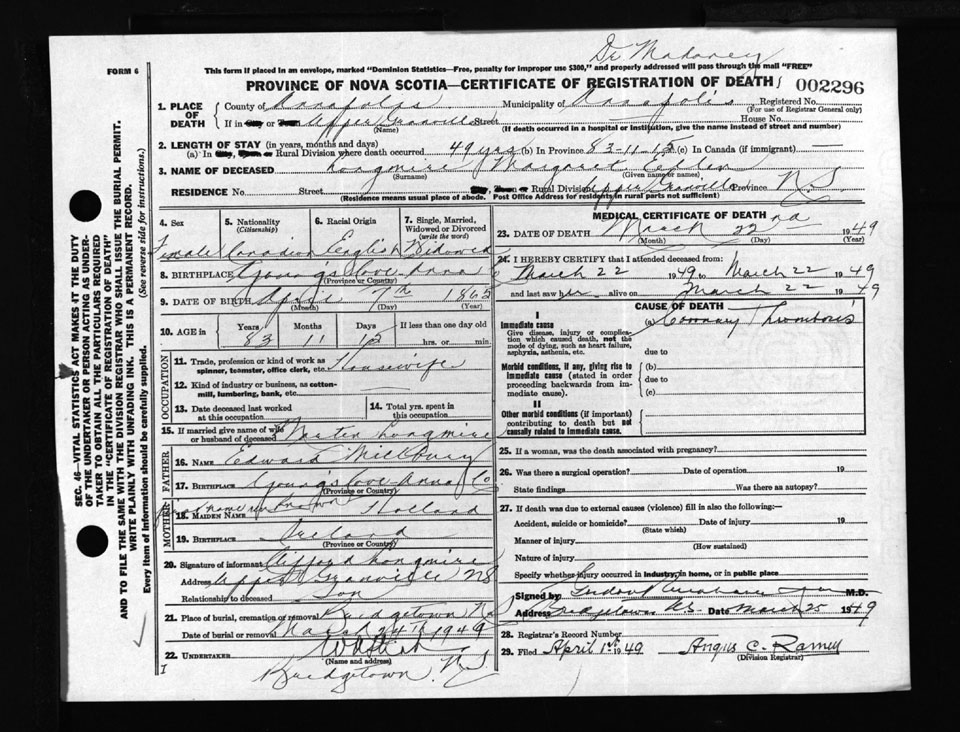 Dr Mahaney
FORM 6
This form if placed in an envelope, marked "Dominion Statistics—Free, penalty for improper use $300," and properly addressed will pass through the mail "FREE"
PROVINCE OF NOVA SCOTIA—CERTIFICATE OF REGISTRATION OF DEATH
002296
1. PLACE OF DEATH
County of Annapolis Municipality of Annapolis Registered No.
(For use of Registrar General only)
If in City or Town Upper Granville Street House No.
(Name) (If death occurred in a hospital or institution, give the name instead of street and number)
2. LENGTH OF STAY (in years, months and days)
(a) In City, Town or Rural Division where death occurred 49 yrs (b) In Province 83-11-15 (c) In Canada (if immigrant) —
3. NAME OF DECEASED Longmire Margaret
(Surname) (Given name or names)
RESIDENCE No. Street City, Town or Rural Division Upper Granville Province N.S.
(Residence means usual place of abode. Post Office Address for residents in rural parts not sufficient)
4. Sex
Female
5. Nationality
(Citizenship)
Canadian
6. Racial Origin
English
7. Single, Married, Widowed or Divorced
(write the word)
Widowed
8. BIRTHPLACE Young's Cove Anna Co
(Province or Country)
9. DATE OF BIRTH April 7th 1865
(Month) (Day) (Year)
10. AGE in Years Months Days If less than one day old
83 11 15 hrs. or min.
OCCUPATION
11. Trade, profession or kind of work as spinner, teamster, office clerk, etc. Housewife
12. Kind of industry or business, as cotton-mill, lumbering, bank, etc.
13. Date deceased last worked at this occupation
14. Total yrs. spent in this occupation
15. If married give name of wife or husband of deceased Longmire
FATHER
16. NAME Edward Milbury
17. BIRTHPLACE Young's Cove Anna Co
(Province or Country)
MOTHER
name unknown
18. MAIDEN NAME Holland
19. BIRTHPLACE Ireland
(Province or Country)
20. Signature of informant Clifford Longmire
Address Upper Granville NS
Relationship to deceased Son
21. Place of burial, cremation or removal Bridgetown NS
Date of burial or removal March 24th 1949
22. UNDERTAKER
(Name and address)
Bridgetown N.S.
I
MEDICAL CERTIFICATE OF DEATH
23. DATE OF DEATH March 22nd 1949
(Month) (Day) (Year)
24. I HEREBY CERTIFY that I attended deceased from:
March 22 1949 to March 22 1949
and last saw her alive on March 22 1949
CAUSE OF DEATH
I
Immediate cause
Give disease, injury or complication which caused death, not the mode of dying, such as heart failure, asphyxia, asthenia, etc.
(a) Coronary Thrombosis
due to
Morbid conditions, if any, giving rise to immediate cause (stated in order proceeding backwards from immediate cause).
(b)
due to
(c)
II
Other morbid conditions (if important) contributing to death but not causally related to immediate cause.
25. If a woman, was the death associated with pregnancy?
26. Was there a surgical operation? Date of operation 19
State findings Was there an autopsy?
27. If death was due to external causes (violence) fill in also the following:—
Accident, suicide or homicide? Date of injury 19
(State which)
Manner of injury
(How sustained)
Nature of injury
Specify whether injury occurred in industry, in home, or in public place
Signed by M.D.
Address Bridgetown N.S. Date March 25 1949
28. Registrar's Record Number
29. Filed April 1st 1949 Angus C. Ramey
(Division Registrar)
SEC. 46—VITAL STATISTICS ACT MAKES IT THE DUTY
OF THE UNDERTAKER OR PERSON ACTING AS UNDER-
TAKER TO OBTAIN ALL THE PARTICULARS REQUIRED
IN THE "CERTIFICATE OF REGISTRATION OF DEATH"
AND TO FILE THE SAME WITH THE DIVISION REGISTRAR WHO SHALL ISSUE THE BURIAL PERMIT.
WRITE PLAINLY WITH UNFADING INK. THIS IS A PERMANENT RECORD.
Every item of information should be carefully supplied. (See reverse side for instructions.)